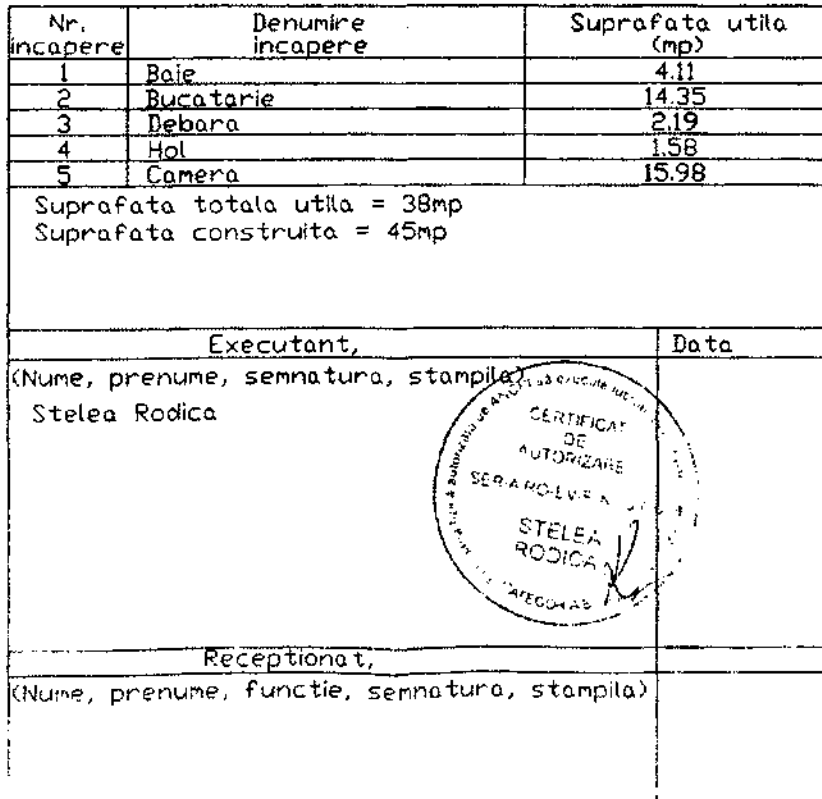 Nr. incapere Denumire incapere Suprafata utila (mp)
1 Baie 4.11
2 Bucatarie 14.35
3 Debara 2.19
4 Hol 1.58
5 Camera 15.98
Suprafata totala utila = 38mp
Suprafata construita = 45mp
Executant, Data
(Nume, prenume, semnatura, stampila)
Stelea Rodica
CERTIFICAT
DE
AUTORIZARE
STELEA
RODICA
Receptionat,
(Nume, prenume, functie, semnatura, stampila)